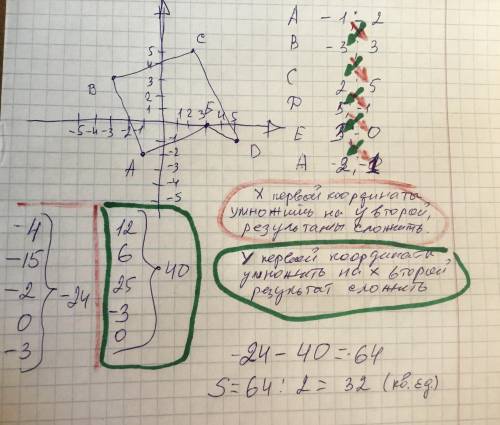 A -1 ; 2
B -3 ; 3
C 2 ; 5
D 5 -1
E 3 - 0
A -2, -1
5
4
3
2
1
-5 -4 -3 -2 -1
1 2 3 4 5
-1
-2
-3
-4
-5
A
B
C
D
E
-4
-15
-2
0
-3
-24
12
6
25
-3
0
40
X первой координаты
умножить на y второй,
результаты сложить
У первой координаты
умножить на X второй
результат сложить
-24 - 40 = -64
S = 64 : 2 = 32 (кв. ед.)